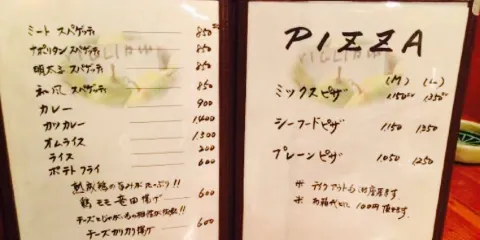 ミート スパゲッティ 850
ナポリタン スパゲッティ 850
明太子 スパゲッティ 850
和風 スパゲッティ 850
カレー 900
カツカレー 1,400
オムライス 1,500
ライス 200
ポテトフライ 600
熟成鶏の旨みがたっぷり!!
鶏モモ 竜田揚げ 600
チーズカリカリ揚げ 600
PIZZA
(M) (L)
ミックスピザ 1,150 1,350
シーフードピザ 1,150 1,350
プレーンピザ 1,050 1,250
※ テイクアウトも出来ます。
※ お箱代として100円頂きます。